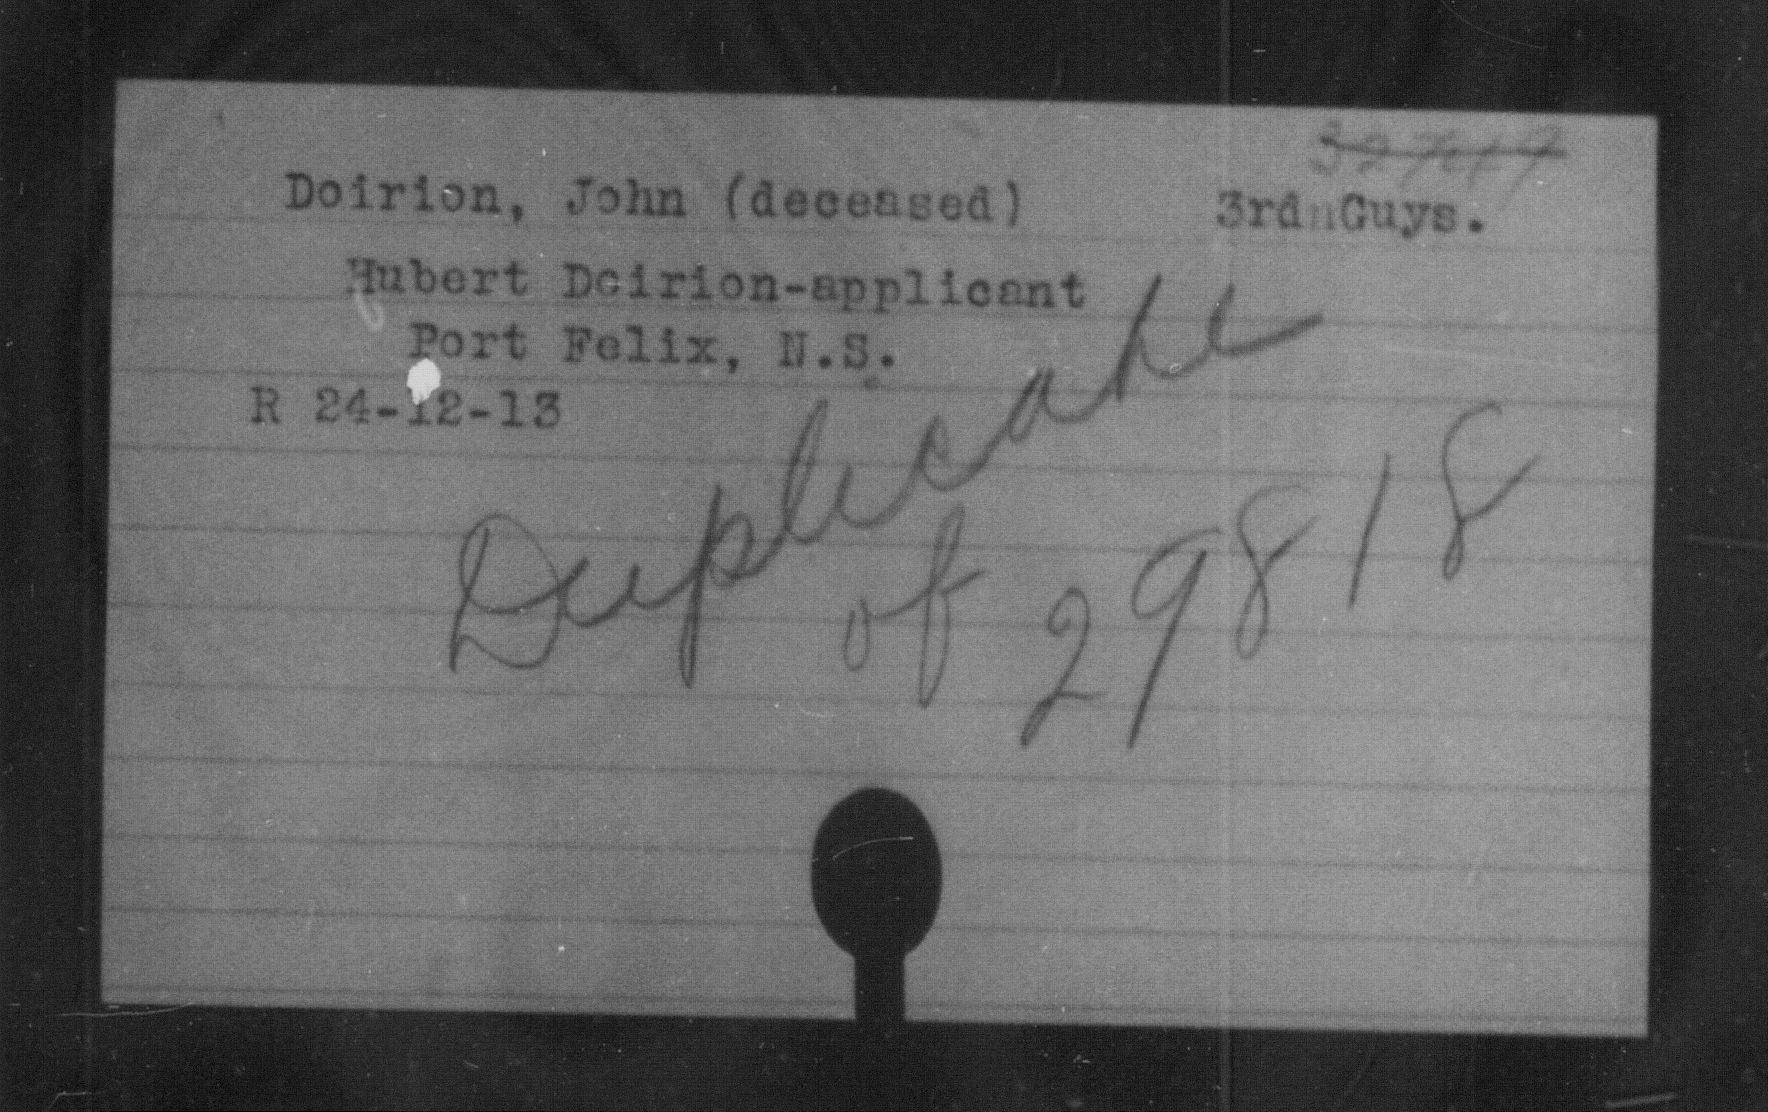 Doirion, John (deceased) 3rd Guys.
Hubert Doirion-applicant
Port Felix, N.S.
R 24-12-13
Duplicate
of 29818